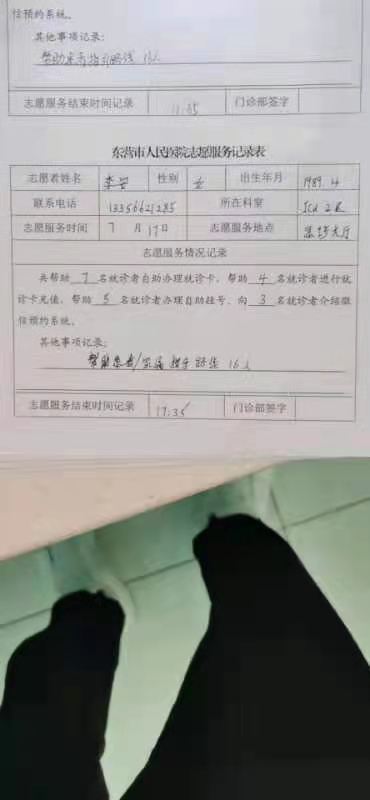 信预约系统。
其他事项记录：
帮助患者指引路线 13人
志愿服务结束时间记录 11:35 门诊部签字
东营市人民医院志愿服务记录表
志愿者姓名 李安 性别 女 出生年月 1989.4
联系电话 13356621285 所在科室 ICU 2区
志愿服务时间 7月17日 志愿服务地点 大厅
志愿服务情况记录
共帮助 7 名就诊者自助办理就诊卡，帮助 4 名就诊者进行就
诊卡充值，帮助 5 名就诊者办理自助挂号，向 3 名就诊者介绍微
信预约系统。
其他事项记录：
帮助患者/家属 16人
志愿服务结束时间记录 17:35 门诊部签字